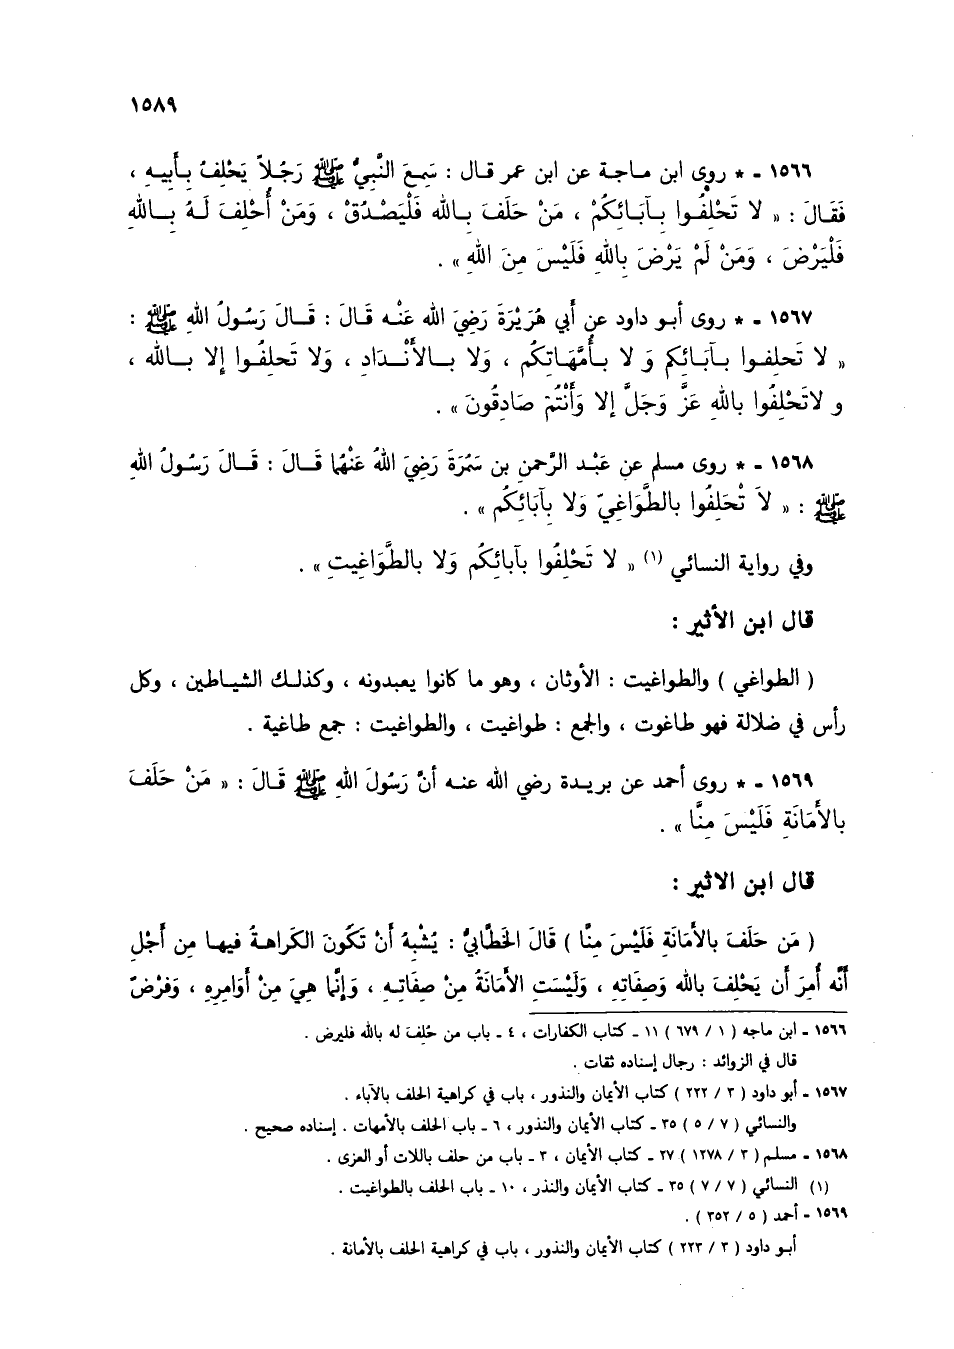 ١٥٨٩
١٥٦٦ ـ * روى ابن ماجة عن ابن عمر قال : سَمِعَ النَّبِيُّ ﷺ رَجُلاً يَحْلِفُ بِأَبيهِ ،
فَقَالَ : « لا تَحْلِفُوا بِآبَائِكُمْ ، مَنْ حَلَفَ بِالله فَلْيَصْدُقْ ، وَمَنْ أُحْلِفَ لَهُ بِالله
فَلْيَرْضَ ، وَمَنْ لَمْ يَرْضَ بِاللهِ فَلَيْسَ مِنَ اللهِ » .
١٥٦٧ ـ * روى أبو داود عن أبي هُرَيْرَةَ رَضِيَ الله عَنْه قَالَ : قَالَ رَسُولُ اللهِ ﷺ :
« لا تَحلِفوا بآبَائِكم وَ لا بأُمَّهَاتِكُم ، وَلا بِالأَنْدَادِ ، وَلا تَحلفُوا إلا بالله ،
و لاتَحْلِفُوا باللهِ عَزَّ وَجَلَّ إلا وَأَنْتُمْ صَادِقُونَ » .
١٥٦٨ ـ * روى مسلم عن عَبْد الرَّحمنِ بن سَمُرَةَ رَضِيَ اللهُ عَنْهُما قَالَ : قَالَ رَسُولُ اللهِ
ﷺ : « لاَ تْحَلِفُوا بالطَّوَاغِيّ وَلا بِآبَائِكُم » .
وفي رواية النسائي (١) « لا تَحْلِفُوا بآبائِكُم وَلا بالطَّوَاغِيتِ » .
قال ابن الأثير :
( الطواغي ) والطواغيت : الأوثان ، وهو ما كانوا يعبدونه ، وكذلك الشياطين ، وكل
رأس في ضلالة فهو طاغوت ، والجمع : طواغيت ، والطواغيت : جمع طاغية .
١٥٦٩ ـ * روى أحمد عن بريدة رضي الله عنه أنَّ رَسُولَ اللهِ ﷺ قَالَ : « مَنْ حَلَفَ
بالأَمَانَةِ فَلَيْسَ مِنَّا » .
قال ابن الاثير :
( مَن حَلَفَ بالأَمَانَةِ فَلَيْسَ مِنَّا ) قَالَ الخَطَّابيُّ : يُشْبِهُ أنْ تَكُونَ الكَراهةُ فيها مِن أَجْلِ
أنَّه أُمِرَ أن يَحْلِفَ بالله وَصِفَاتِهِ ، وَلَيْسَتِ الأمَانَةُ مِنْ صِفَاتِهِ ، وَإنَّما هِيَ مِنْ أَوَامِرِهِ ، وَفَرْضٌ
١٥٦٦ ـ ابن ماجه ( ١ / ٦٧٩ ) ١١ ـ كتاب الكفارات ، ٤ ـ باب من حُلِف له بالله فليرض .
قال في الزوائد : رجال إسناده ثقات .
١٥٦٧ ـ أبو داود ( ٣ / ٢٢٢ ) كتاب الأيمان والنذور ، باب في كراهية الحلف بالآباء .
والنسائي ( ٧ / ٥ ) ٣٥ ـ كتاب الأيمان والنذور ، ٦ ـ باب الحلف بالأمهات . إسناده صحيح .
١٥٦٨ ـ مسلم ( ٣ / ١٢٧٨ ) ٢٧ ـ كتاب الأيمان ، ٣ ـ باب من حلف باللات أو العزى .
(١) النسائي ( ٧ / ٧ ) ٣٥ ـ كتاب الأيمان والنذر ، ١٠ ـ باب الحلف بالطواغيت .
١٥٦٩ ـ أحمد ( ٥ / ٣٥٢ ) .
أبو داود ( ٣ / ٢٢٣ ) كتاب الأيمان والنذور ، باب في كراهية الحلف بالأمانة .